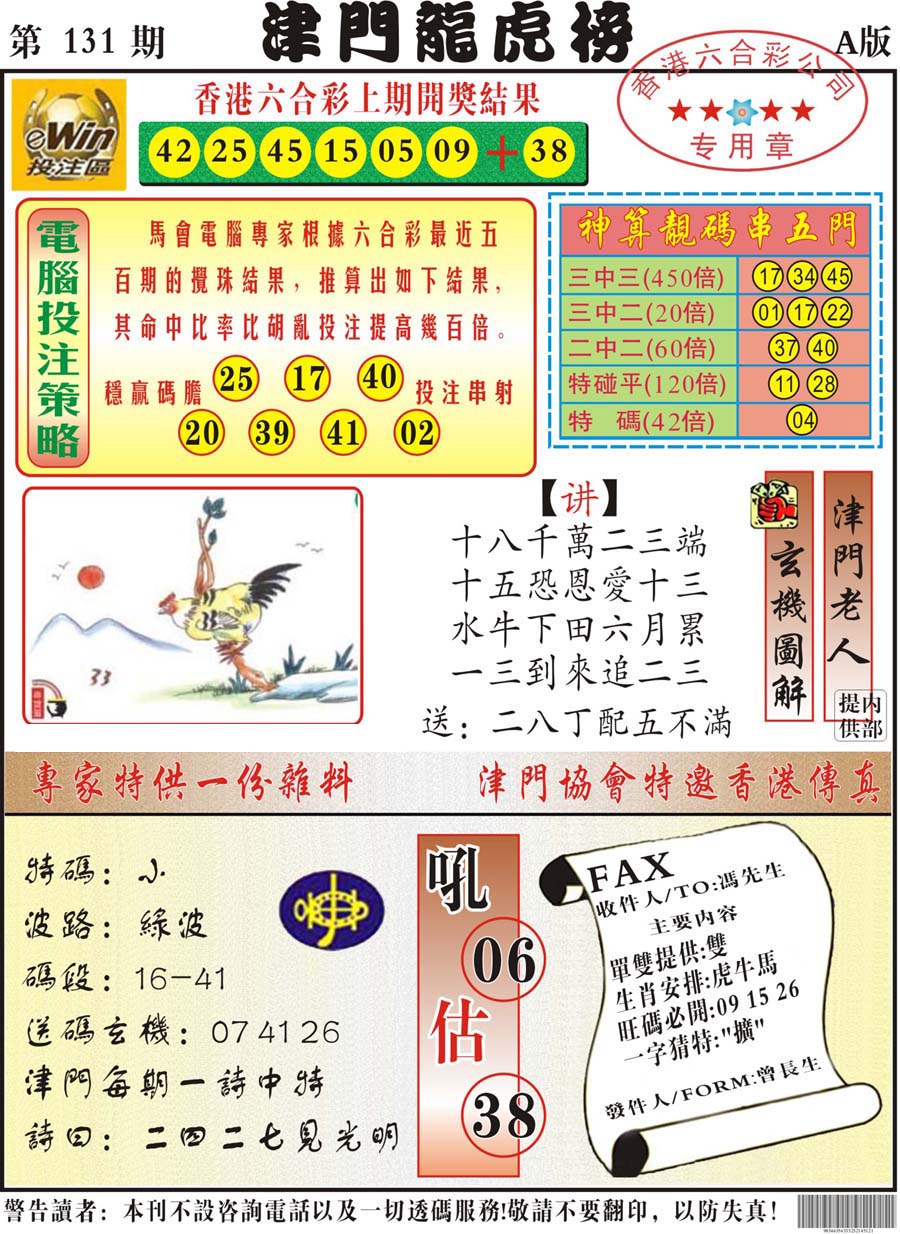 第 131 期
津門龍虎榜
A版
eWin
投注區
香港六合彩上期開獎結果
42 25 45 15 05 09 + 38
香港六合彩公司
专用章
電腦投注策略
馬會電腦專家根據六合彩最近五
百期的攪珠結果，推算出如下結果，
其命中比率比胡亂投注提高幾百倍。
穩贏碼膽 25 17 40 投注串射
20 39 41 02
神算靚碼串五門
三中三(450倍) 17 34 45
三中二(20倍) 01 17 22
二中二(60倍) 37 40
特碰平(120倍) 11 28
特 碼(42倍) 04
33
【讲】
十八千萬二三端
十五恐恩愛十三
水牛下田六月累
一三到來追二三
送：二八丁配五不滿
玄機圖解
津門老人
内部提供
專家特供一份雜料
津門協會特邀香港傳真
特碼：小
波路：綠波
碼段：16-41
送碼玄機：07 41 26
津門每期一詩中特
詩曰：二四二七見光明
吼
06
估
38
FAX
收件人/TO:馮先生
主要内容
單雙提供:雙
生肖安排:虎牛馬
旺碼必開:09 15 26
一字猜特:"擴"
發件人/FORM:曾長生
警告讀者：本刊不設咨詢電話以及一切透碼服務!敬請不要翻印，以防失真!